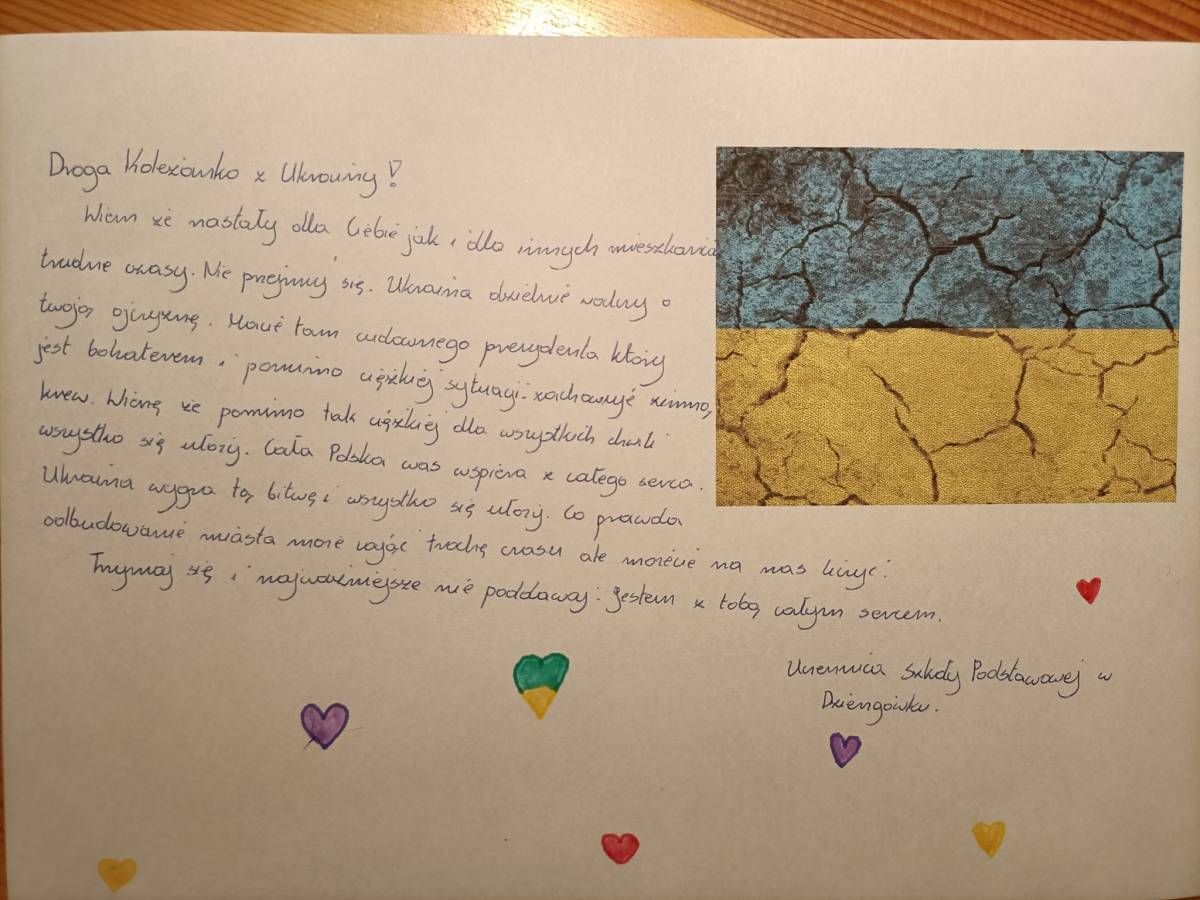 Droga Koleżanko z Ukrainy!
Wiem że nastały dla Ciebie jak i dla innych mieszkańców
trudne czasy. Nie przejmuj się. Ukraina dzielnie walczy o
twoją ojczyznę. Macie tam cudownego prezydenta który
jest bohaterem i pomimo ciężkiej sytuacji zachowuje zimną
krew. Wierzę że pomimo tak ciężkiej dla wszystkich chwili
wszystko się ułoży. Cała Polska was wspiera z całego serca.
Ukraina wygra tą bitwę i wszystko się ułoży. Co prawda
odbudowanie miasta może zająć trochę czasu ale możecie na nas liczyć.
Trzymaj się i najważniejsze nie poddawaj. Jestem z tobą całym sercem.
Uczennica Szkoły Podstawowej w